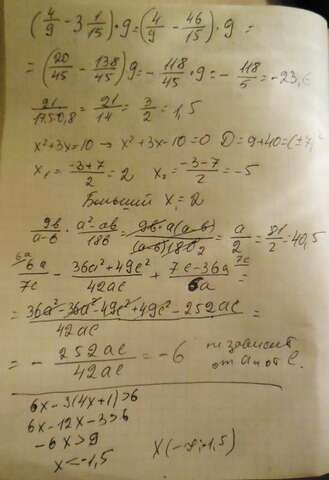 (4/9 - 3 1/15) · 9 = (4/9 - 46/15) · 9 =
= (20/45 - 138/45) 9 = - 118/45 · 9 = - 118/5 = -23,6
21/17,5·0,8 = 21/14 = 3/2 = 1,5
x²+3x=10 → x²+3x-10=0 D=9+40=(±7)²
x₁ = (-3+7)/2 = 2 x₂ = (-3-7)/2 = -5
Больший x₁=2
9b/(a-b) · (a²-ab)/18b = 9b·a(a-b)/(a-b)18b 2 = a/2 = 81/2 = 40,5
6a 6a/7c - (36a²+49c²)/42ac + (7c-36a)/6a 7c =
= (36a²-36a²-49c²+49c²-252ac)/42ac =
= - 252ac/42ac = -6 не зависит от a и от c.
6x-3(4x+1)>6
6x-12x-3>6
-6x>9
x<-1,5 x(-∞;-1,5)